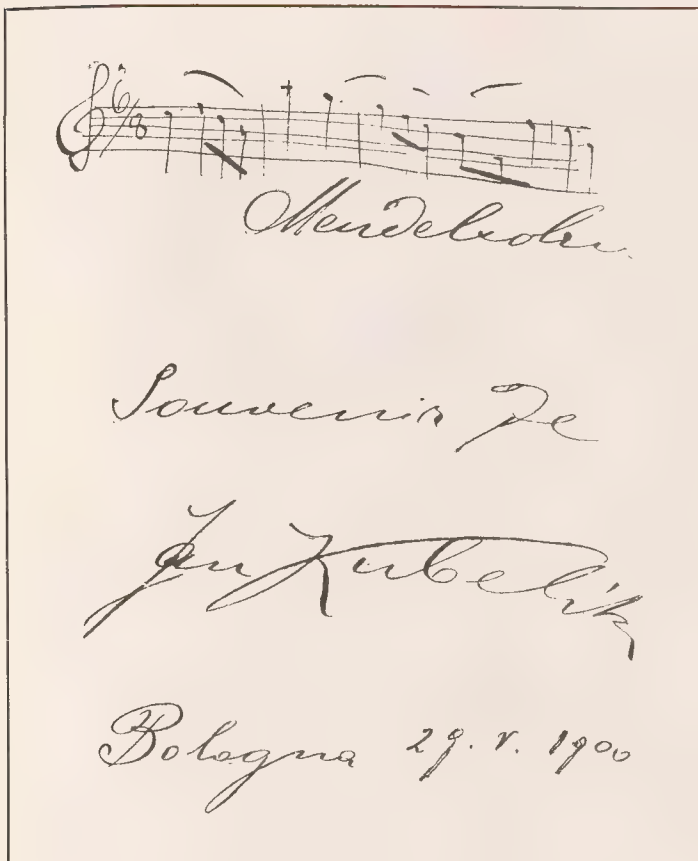 6/8
Mendelsohn.
Souvenir de
Jan Kubelík
Bologna 29. V. 1900